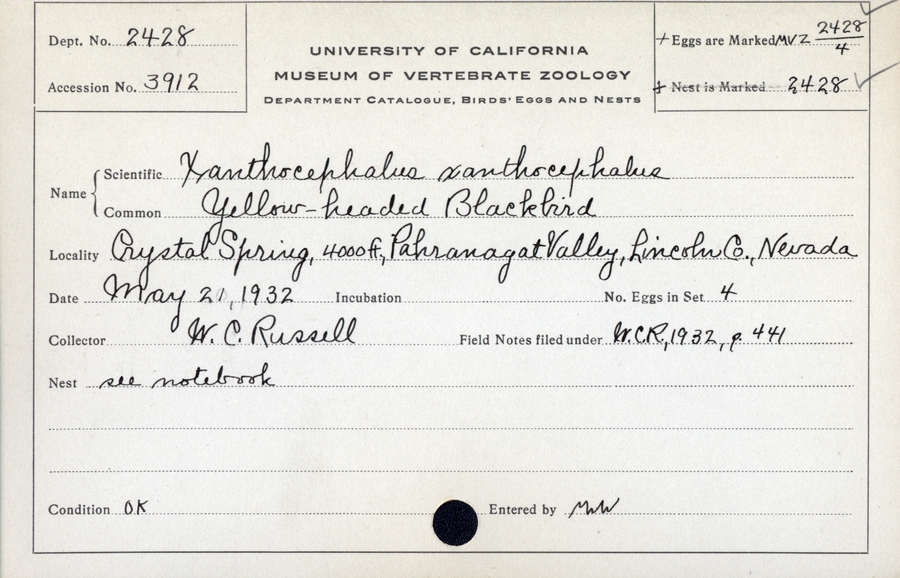 Dept. No. 2428
Accession No. 3912
UNIVERSITY OF CALIFORNIA
MUSEUM OF VERTEBRATE ZOOLOGY
DEPARTMENT CATALOGUE, BIRDS' EGGS AND NESTS
+ Eggs are Marked MVZ 2428/4
+ Nest is Marked 2428
Name
Scientific Xanthocephalus xanthocephalus
Common Yellow-headed Blackbird
Locality Crystal Spring, 4000 ft., Pahranagat Valley, Lincoln Co., Nevada
Date May 21, 1932 Incubation No. Eggs in Set 4
Collector W. C. Russell Field Notes filed under W.C.R., 1932, p. 441
Nest see notebook
Condition OK Entered by